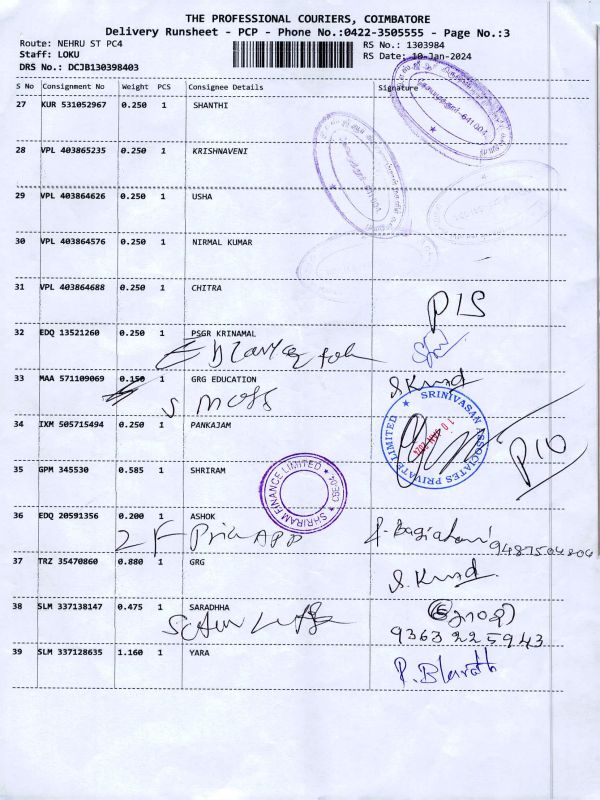 THE PROFESSIONAL COURIERS, COIMBATORE
Delivery Runsheet - PCP - Phone No.:0422-3505555 - Page No.:3
Route: NEHRU ST PC4 RS No.: 1303984
Staff: LOKU RS Date: 10-Jan-2024
DRS No.: DCJB130398403
S No Consignment No Weight PCS Consignee Details Signature
27 KUR 531052967 0.250 1 SHANTHI
28 VPL 403865235 0.250 1 KRISHNAVENI
29 VPL 403864626 0.250 1 USHA
30 VPL 403864576 0.250 1 NIRMAL KUMAR
31 VPL 403864688 0.250 1 CHITRA
32 EDQ 13521260 0.250 1 PSGR KRINAMAL
33 MAA 571109069 0.150 1 GRG EDUCATION
S. Kund
34 IXM 505715494 0.250 1 PANKAJAM
SRINIVASAN ASSOCIATES PRIVATE LIMITED
35 GPM 345530 0.585 1 SHRIRAM
SHRIRAM FINANCE LIMITED
P10
36 EDQ 20591356 0.200 1 ASHOK
2 F APP
37 TRZ 35470860 0.880 1 GRG
S. Kund
38 SLM 337138147 0.475 1 SARADHHA
9363225943
39 SLM 337128635 1.160 1 YARA
P. Bharath